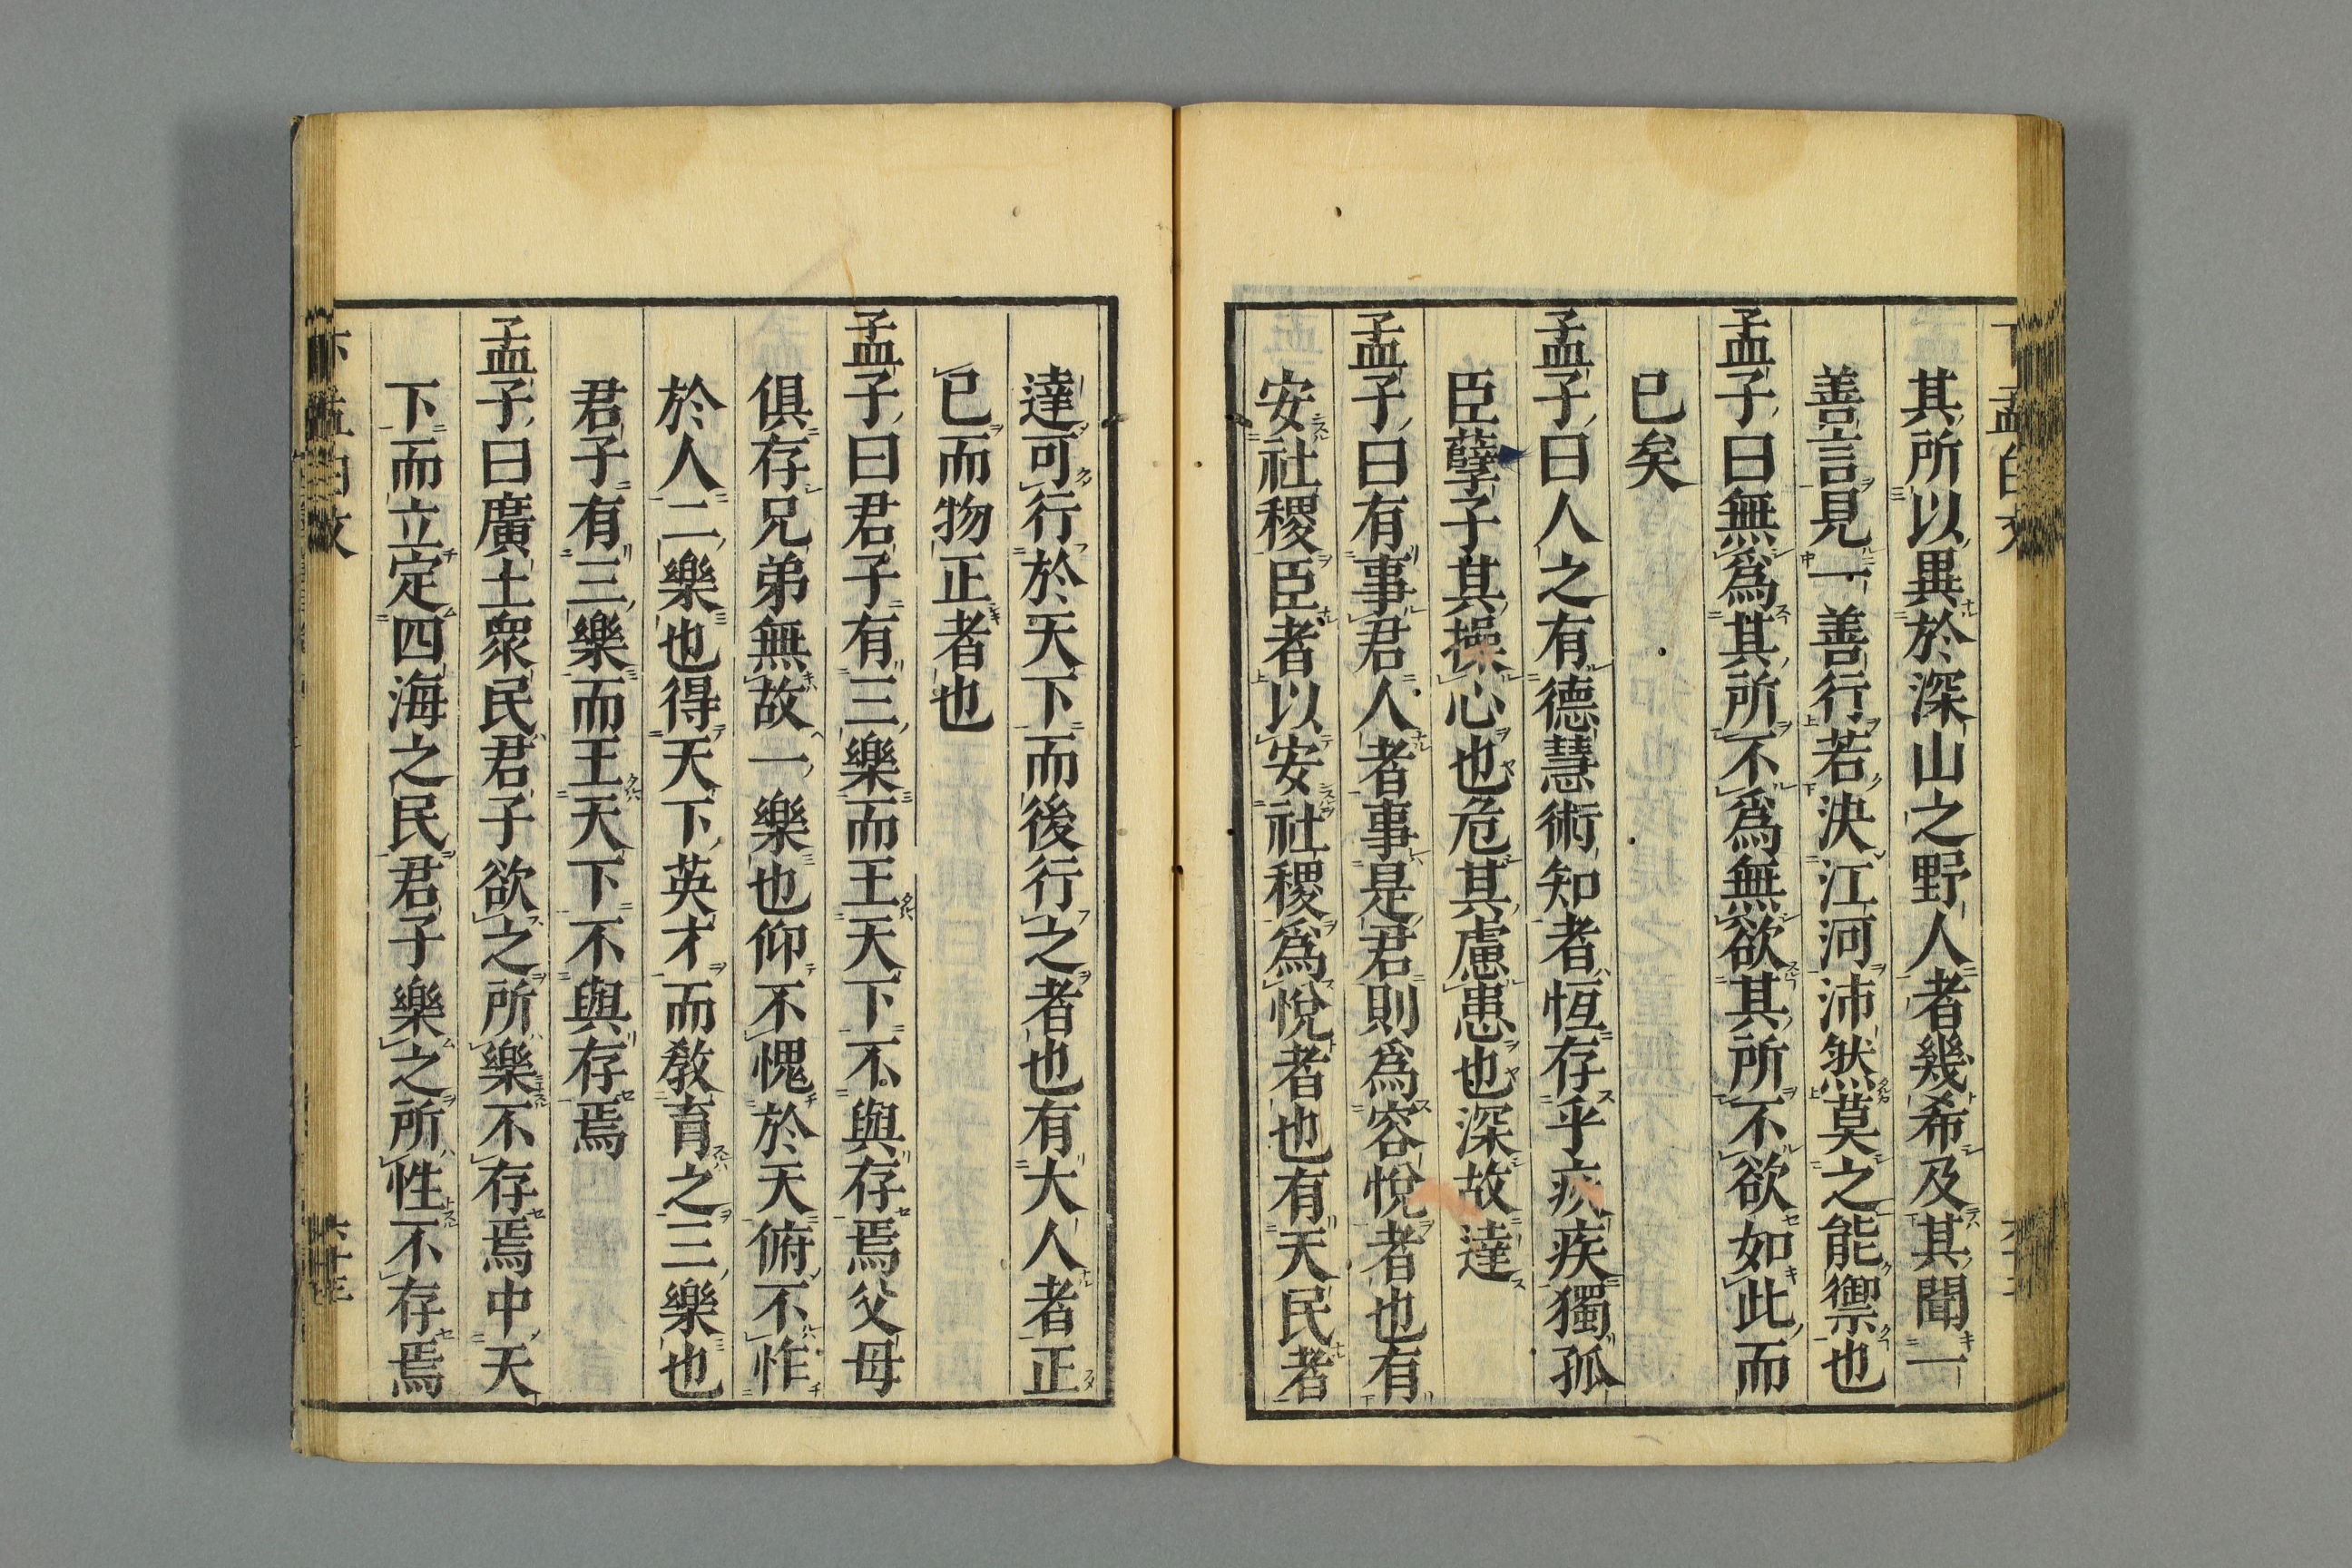 其所以異於深山之野人者幾希及其聞一
善言見一善行若決江河沛然莫之能禦也
孟子曰無爲其所不爲無欲其所不欲如此而
已矣
孟子曰人之有德慧術知者恆存乎疢疾獨孤
臣孽子其操心也危其慮患也深故達
孟子曰有事君人者事是君則爲容悅者也有
安社稷臣者以安社稷爲悅者也有天民者
達可行於天下而後行之者也有大人者正
已而物正者也
孟子曰君子有三樂而王天下不與存焉父母
俱存兄弟無故一樂也仰不愧於天俯不怍
於人二樂也得天下英才而敎育之三樂也
君子有三樂而王天下不與存焉
孟子曰廣土衆民君子欲之所樂不存焉中天
下而立定四海之民君子樂之所性不存焉